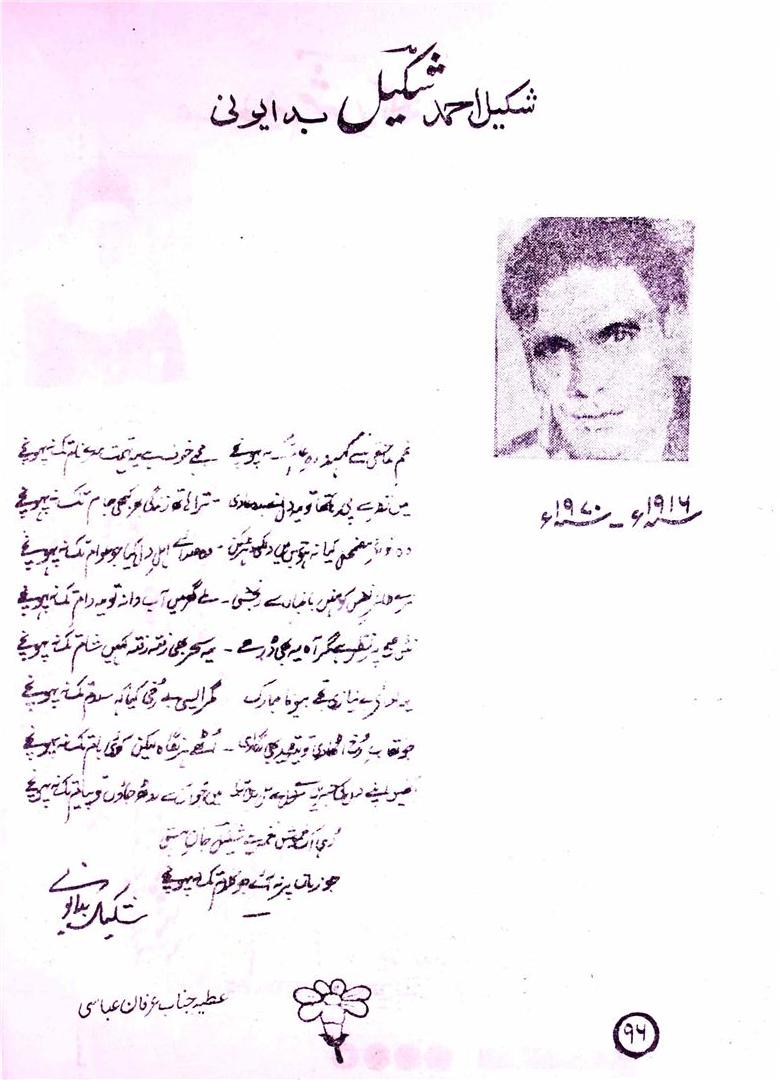 شکیل احمد شکیلؔ بدایونی
۱۹۱۶ء - ۱۹۷۰ء
غم عاشقی سے کہہ دو رہِ عام تک نہ پہونچے مجھے خوف ہے یہ تہمت مرے نام تک نہ پہونچے
میں نظر سے پی رہا تھا تو یہ دل نے بد دعا دی - ترا ہاتھ زندگی بھر کبھی جام تک نہ پہونچے
وہ نوائے مضمحل کیا نہ ہو جس میں دل کی دھڑکن - وہ صدائے اہل دل کیا جو عوام تک نہ پہونچے
مرے طائرِ نفس کو نہیں باغباں سے رنجش - ملے گھر میں آب و دانہ تو یہ دام تک نہ پہونچے
نئی صبح پر نظر ہے مگر آہ یہ بھی ڈر ہے - یہ سحر بھی رفتہ رفتہ کہیں شام تک نہ پہونچے
یہ ادائے بے نیازی تجھے بے وفا مبارک مگر ایسی بے رُخی کیا کہ سلام تک نہ پہونچے
جو نقابِ رخ اٹھا دی تو یہ قید بھی لگا دی - اُٹھے ہر نگاہ لیکن کوئی بام تک نہ پہونچے
انہیں اپنے دل کی خبریں مرے دل سے مل رہی ہیں میں جو اُن سے روٹھ جاؤں تو پیام تک نہ پہونچے
وہی اک خموش نغمہ ہے شکیلؔ جانِ ہستی
جو زباں پر نہ آئے جو کلام تک نہ پہونچے
شکیل بدایونی
عطیہ جناب عرفان عباسی
۹۶